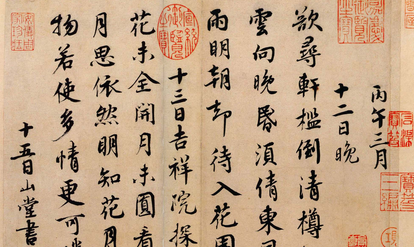 丙午三月
十二日晚
欲尋軒檻倒清樽
雲向晚昏須倩東
雨明朝却待入花園
十三日吉祥院探
花未全開月未圓看
月思依然明知花月
物若使多情更可
十五日山堂書